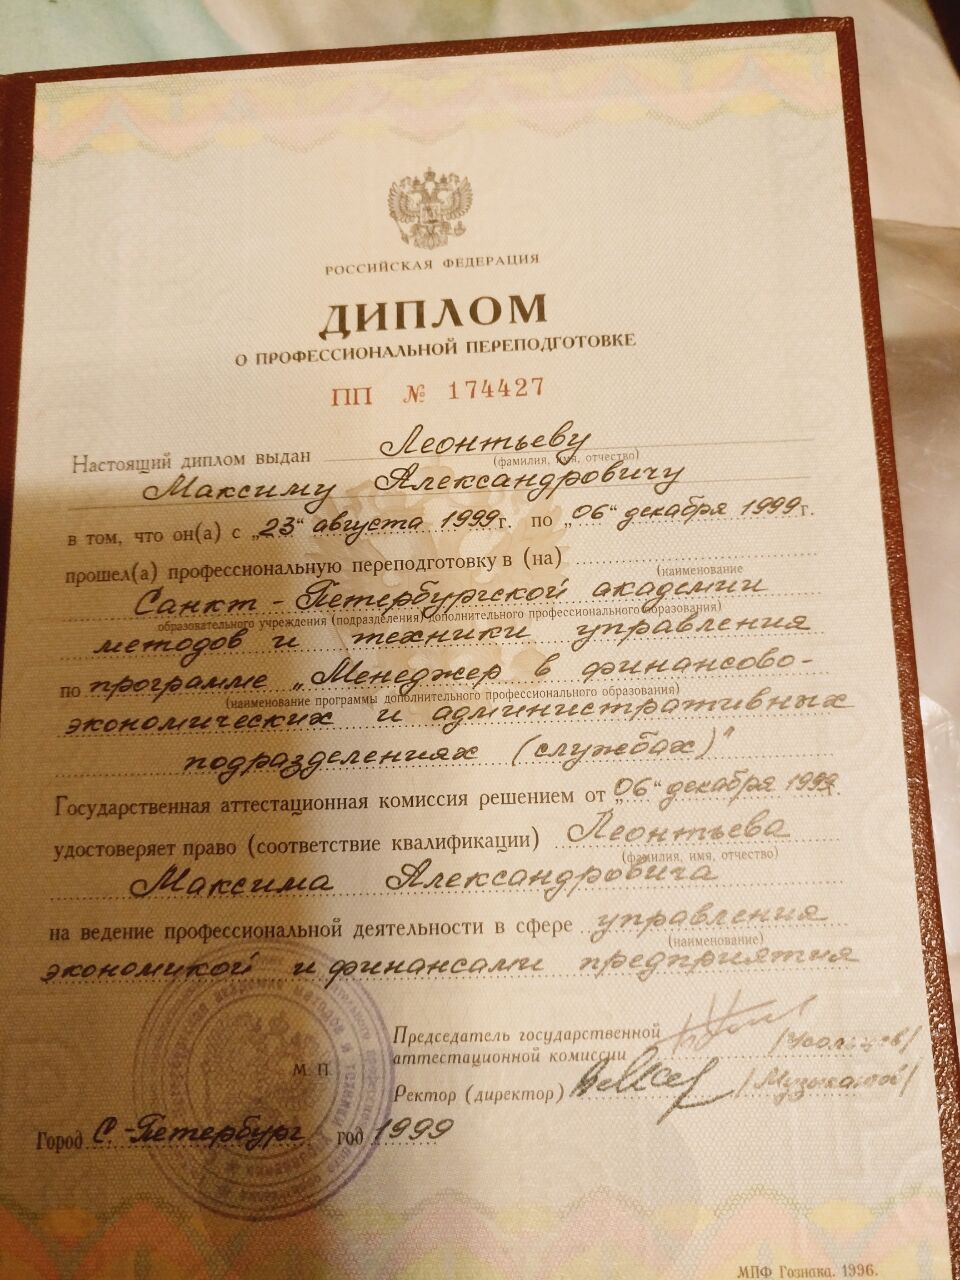 РОССИЙСКАЯ ФЕДЕРАЦИЯ
ДИПЛОМ
О ПРОФЕССИОНАЛЬНОЙ ПЕРЕПОДГОТОВКЕ
ПП № 174427
Настоящий диплом выдан Леонтьеву
(фамилия, имя, отчество)
Максиму Александровичу
в том, что он(а) с „23“ августа 1999г. по „06“ декабря 1999г.
прошел(а) профессиональную переподготовку в (на)
(наименование
Санкт-Петербургской академии
образовательного учреждения (подразделения) дополнительного профессионального образования)
методов и техники управления
по программе „Менеджер в финансово-
(наименование программы дополнительного профессионального образования)
экономических и административных
подразделениях (службах)"
Государственная аттестационная комиссия решением от „06“ декабря 1999г.
удостоверяет право (соответствие квалификации) Леонтьева
(фамилия, имя, отчество)
Максима Александровича
на ведение профессиональной деятельности в сфере управления
(наименование)
экономикой и финансами предприятия
Председатель государственной
аттестационной комиссии
М. П.
Ректор (директор)
Город С.-Петербург год 1999
МПФ Гознака. 1996.